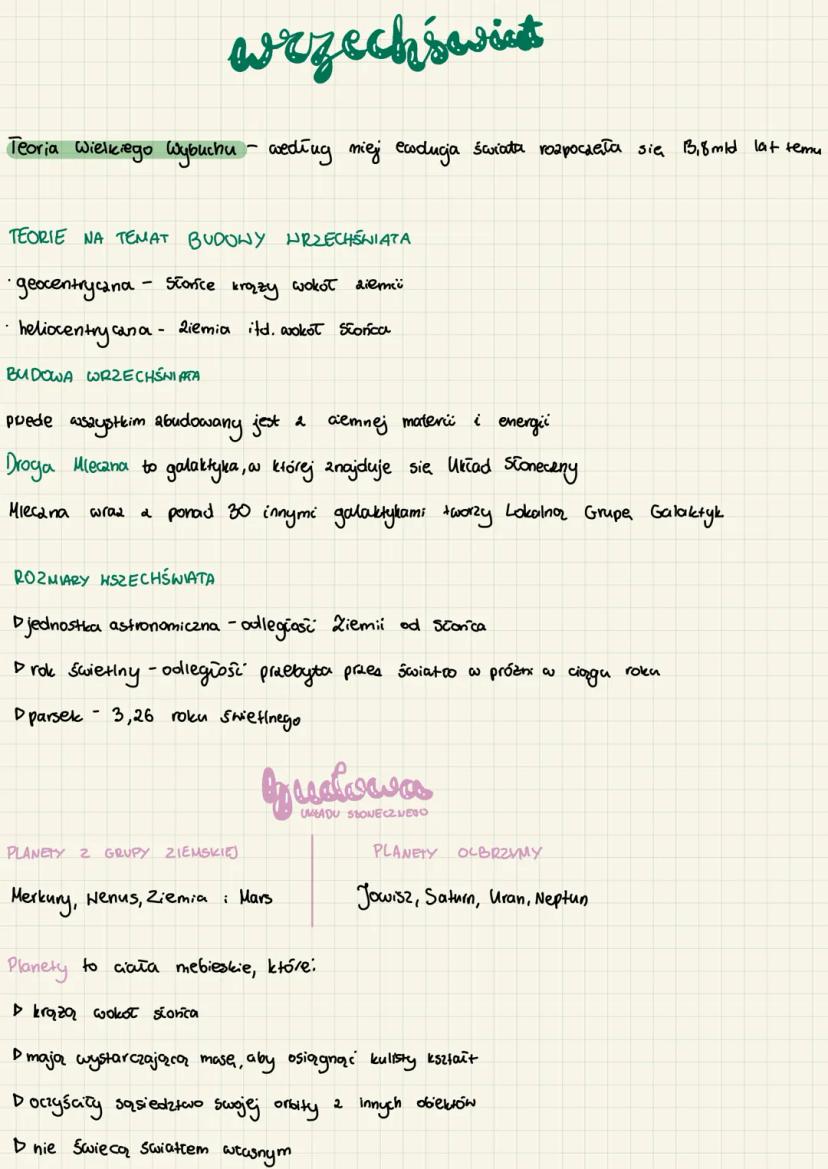 wrzechświat
Teoria Wielkiego Wybuchu - według niej ewolucja świata rozpoczęła się 13,8 mld lat temu
TEORIE NA TEMAT BUDOWY WRZECHŚWIATA
· geocentryczna - słońce krąży wokół ziemii
· heliocentryczna - ziemia itd. wokół słońca
BUDOWA WRZECHŚWIATA
przede wszystkim zbudowany jest z ciemnej materii i energii
Droga Mleczna to galaktyka, w której znajduje się Układ Słoneczny
Mleczna wraz z ponad 30 innymi galaktykami tworzy Lokalną Grupę Galaktyk
ROZMIARY WSZECHŚWIATA
▷ jednostka astronomiczna - odległość Ziemii od Słońca
▷ rok świetlny - odległość przebyta przez światło w próżni w ciągu roku
▷ parsek - 3,26 roku świetlnego
budowa
UKŁADU SŁONECZNEGO
PLANETY Z GRUPY ZIEMSKIEJ PLANETY OLBRZYMY
Merkury, Wenus, Ziemia i Mars Jowisz, Saturn, Uran, Neptun
Planety to ciała niebieskie, które:
▷ krążą wokół słońca
▷ mają wystarczającą masę, aby osiągnąć kulisty kształt
▷ oczyściły sąsiedztwo swojej orbity z innych obiektów
▷ nie świecą światłem własnym